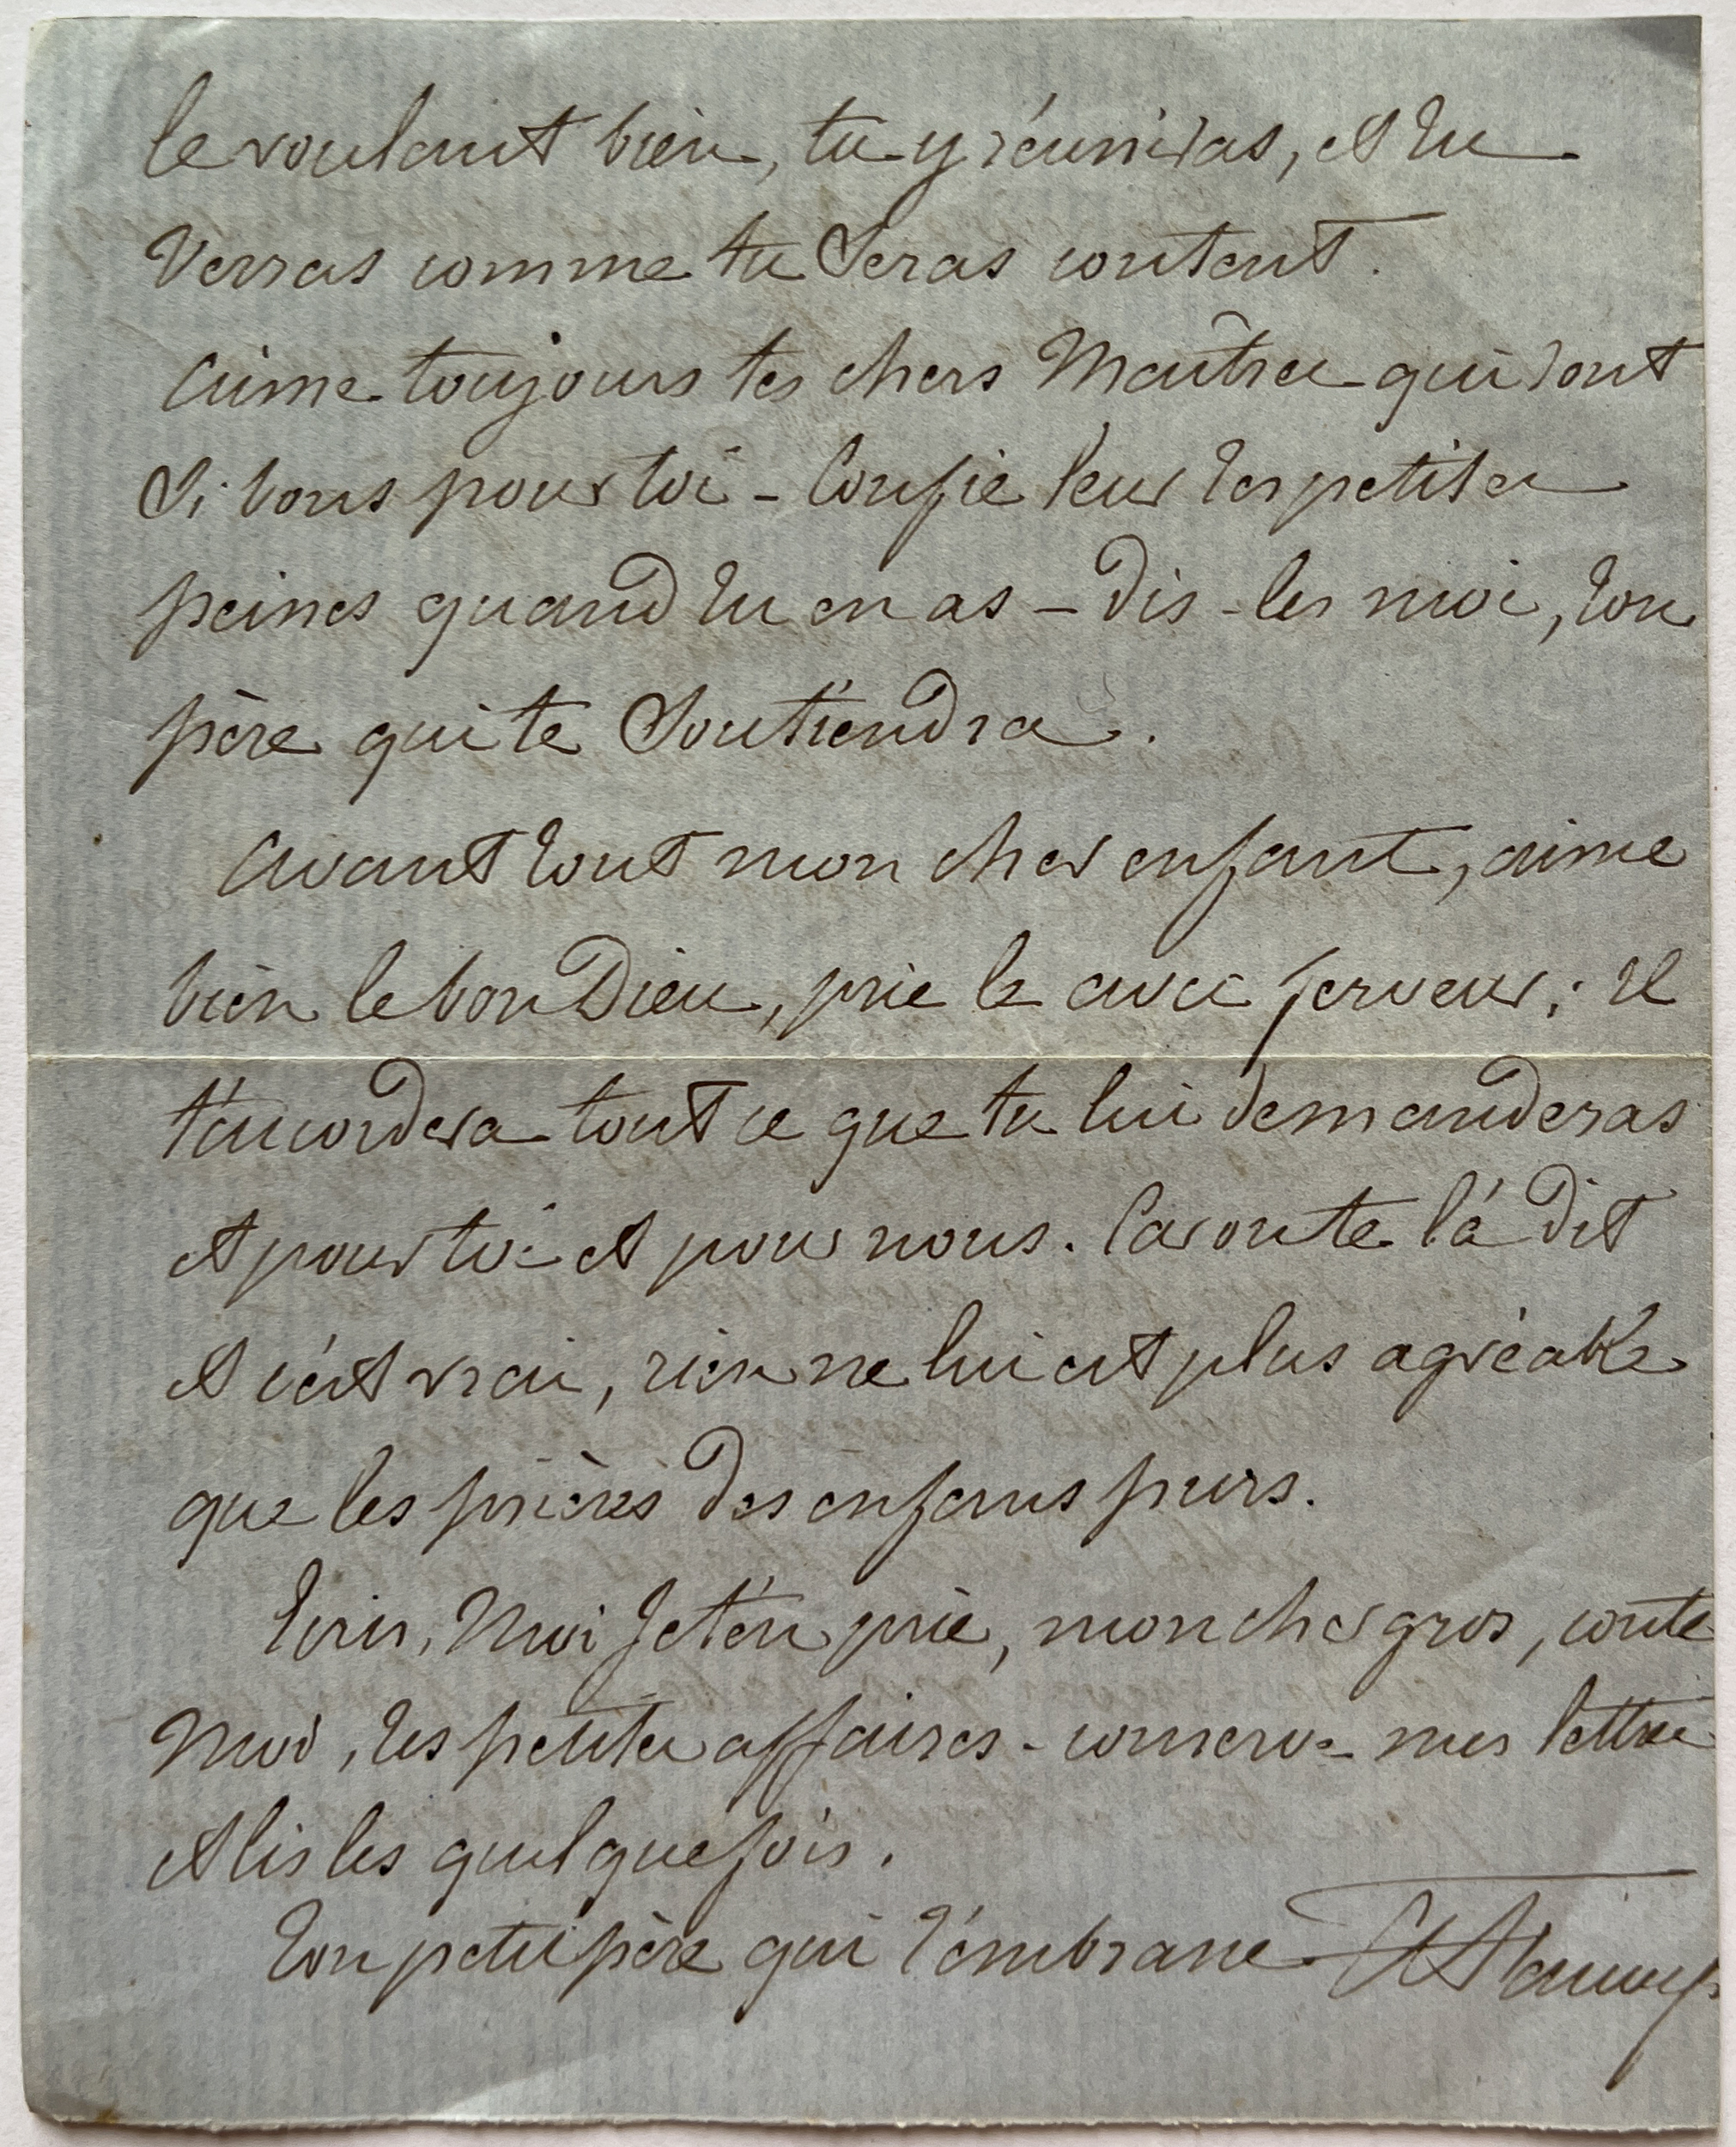 le voulant bien, tu y réunisas, et tu
Verras comme tu Seras content.
Aime toujours tes chers Maîtres qui sont
Si bons pour toi - Confie leur tes petites
peines quand tu en as - Dis-les moi, ton
père qui te Soutiendra.
Avant tout mon cher enfant, aime
bien le bon Dieu, prie le avec ferveur ; Il
t'accordera tout ce que tu lui demanderas
et pour toi et pour nous. l'a dit
et c'est vrai, rien ne lui est plus agréable
que les prières des enfans purs.
Ecris, Moi Je t'en prie, mon cher gros, conte
Moi, tes petites affaires - conserve mes lettres
et lis les quelquefois.
Ton petit père qui t'embrasse